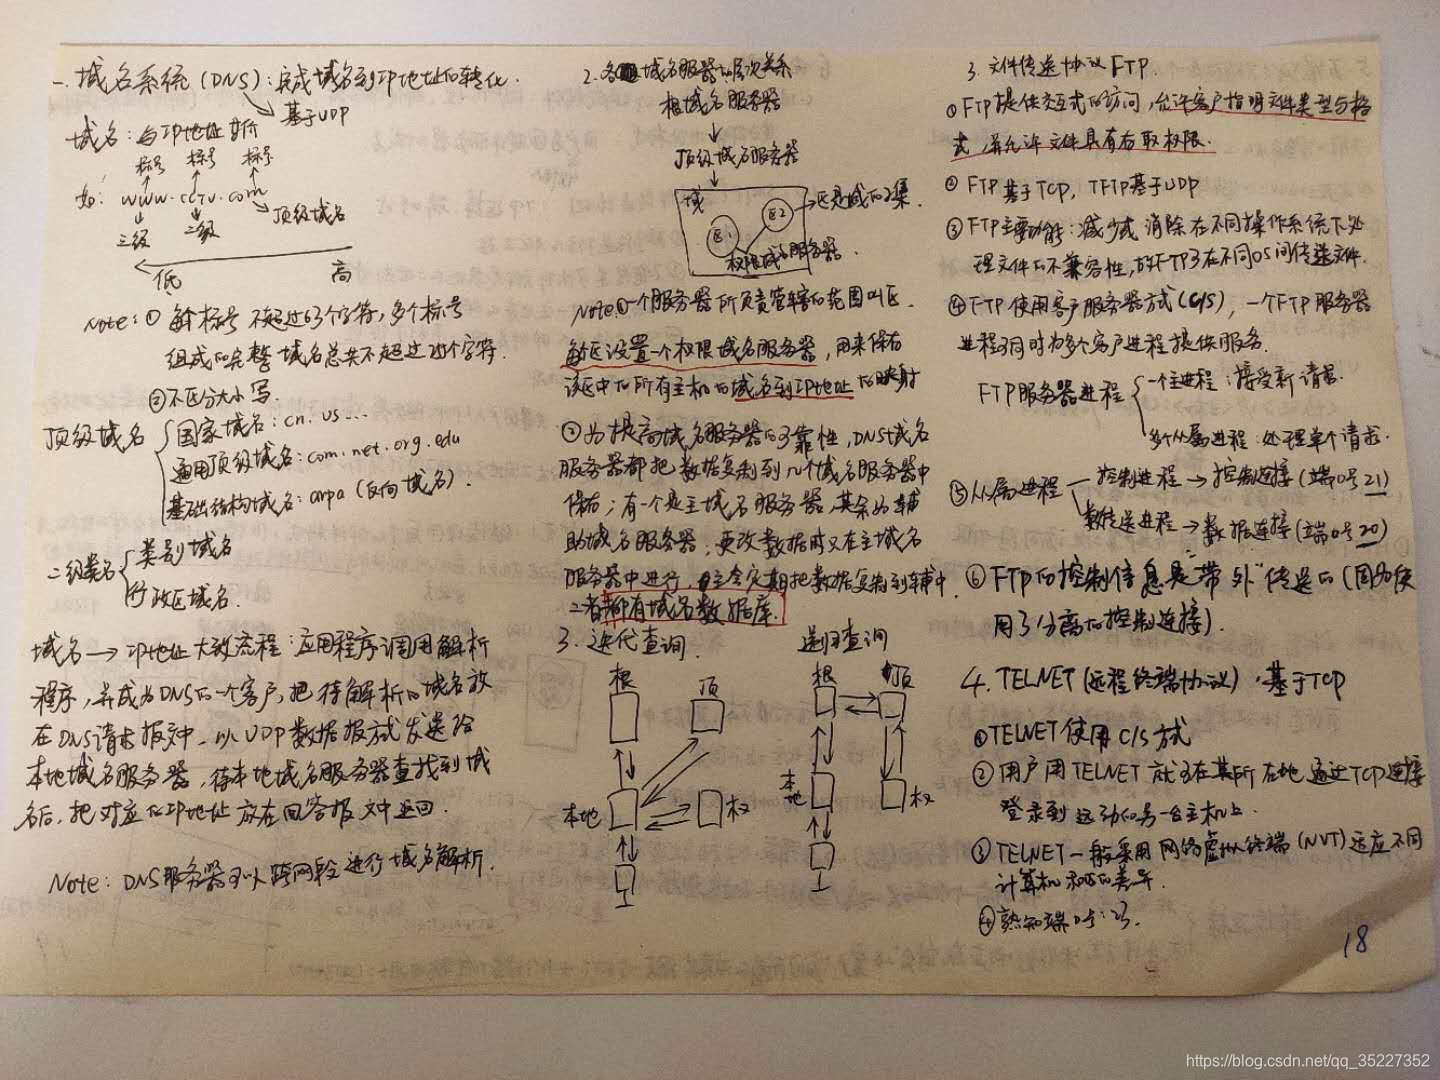 一. 域名系统 (DNS): 完成域名到IP地址的转化.
基于UDP
域名: 与IP地址等价
标号 标号 标号
如: www.cctv.com
三级 二级 顶级域名
低 高
Note: ① 每个标号不超过63个字符, 多个标号
组成的完整域名总共不超过255个字符.
②不区分大小写.
顶级域名
国家域名: cn. us ...
通用顶级域名: com. net. org. edu
基础结构域名: arpa (反向域名).
二级域名
类别域名
行政区域名.
域名→IP地址大致流程: 应用程序调用解析
程序, 并成为DNS的一个客户, 把待解析的域名放
在DNS请求报文中, 以UDP数据报方式发送给
本地域名服务器, 待本地域名服务器查找到域
名后, 把对应的IP地址放在回答报文中返回.
Note: DNS服务器可以跨网段进行域名解析.
2. 各级域名服务器的层次关系
根域名服务器
顶级域名服务器
域 区1 区2 →区是域的子集.
权限域名服务器.
Note①一个服务器所负责管辖的范围叫区.
每区设置一个权限域名服务器, 用来保存
该区中的所有主机的域名到IP地址的映射
②为提高域名服务器的可靠性, DNS域名
服务器都把数据复制到几个域名服务器中
保存; 有一个是主域名服务器, 其余为辅
助域名服务器, 更改数据时只在主域名
服务器中进行, 主会定期把数据复制到辅中.
二者都有域名数据库.
3. 迭代查询. 递归查询
根 顶 根 顶
本地 权 本地 权
3. 文件传送协议FTP.
①FTP提供交互式的访问, 允许客户指明文件类型与格
式, 并允许文件具有存取权限.
② FTP基于TCP, TFTP基于UDP
③FTP主要功能: 减少或消除在不同操作系统下处
理文件的不兼容性, 故FTP可在不同OS间传送文件.
④FTP使用客户服务器方式(C/S), 一个FTP服务器
进程可同时为多个客户进程提供服务.
FTP服务器进程
一个主进程: 接受新请求.
多个从属进程: 处理单个请求.
⑤从属进程
控制进程→控制连接(端口号21)
数据传送进程→数据连接(端口号20)
⑥FTP的控制信息是"带外"传送的(因为使
用了分离的控制连接).
4. TELNET (远程终端协议), 基于TCP
①TELNET使用C/S方式
② 用户用TELNET就可在其所在地通过TCP连接
登录到远动的另一台主机上.
③TELNET一般采用网络虚拟终端(NVT)适应不同
计算机系统的差异.
④熟知端口号: 23.
18
https://blog.csdn.net/qq_35227352